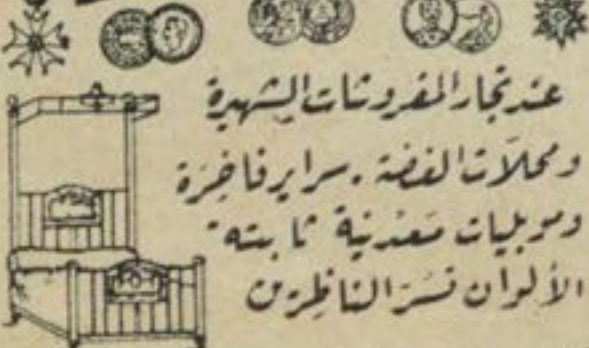 عند تجار المفروشات الشهيرة
ومحلات الفضة. سراير فاخرة
وموبليات معدنية ثابته
الألوان تسر الناظرين